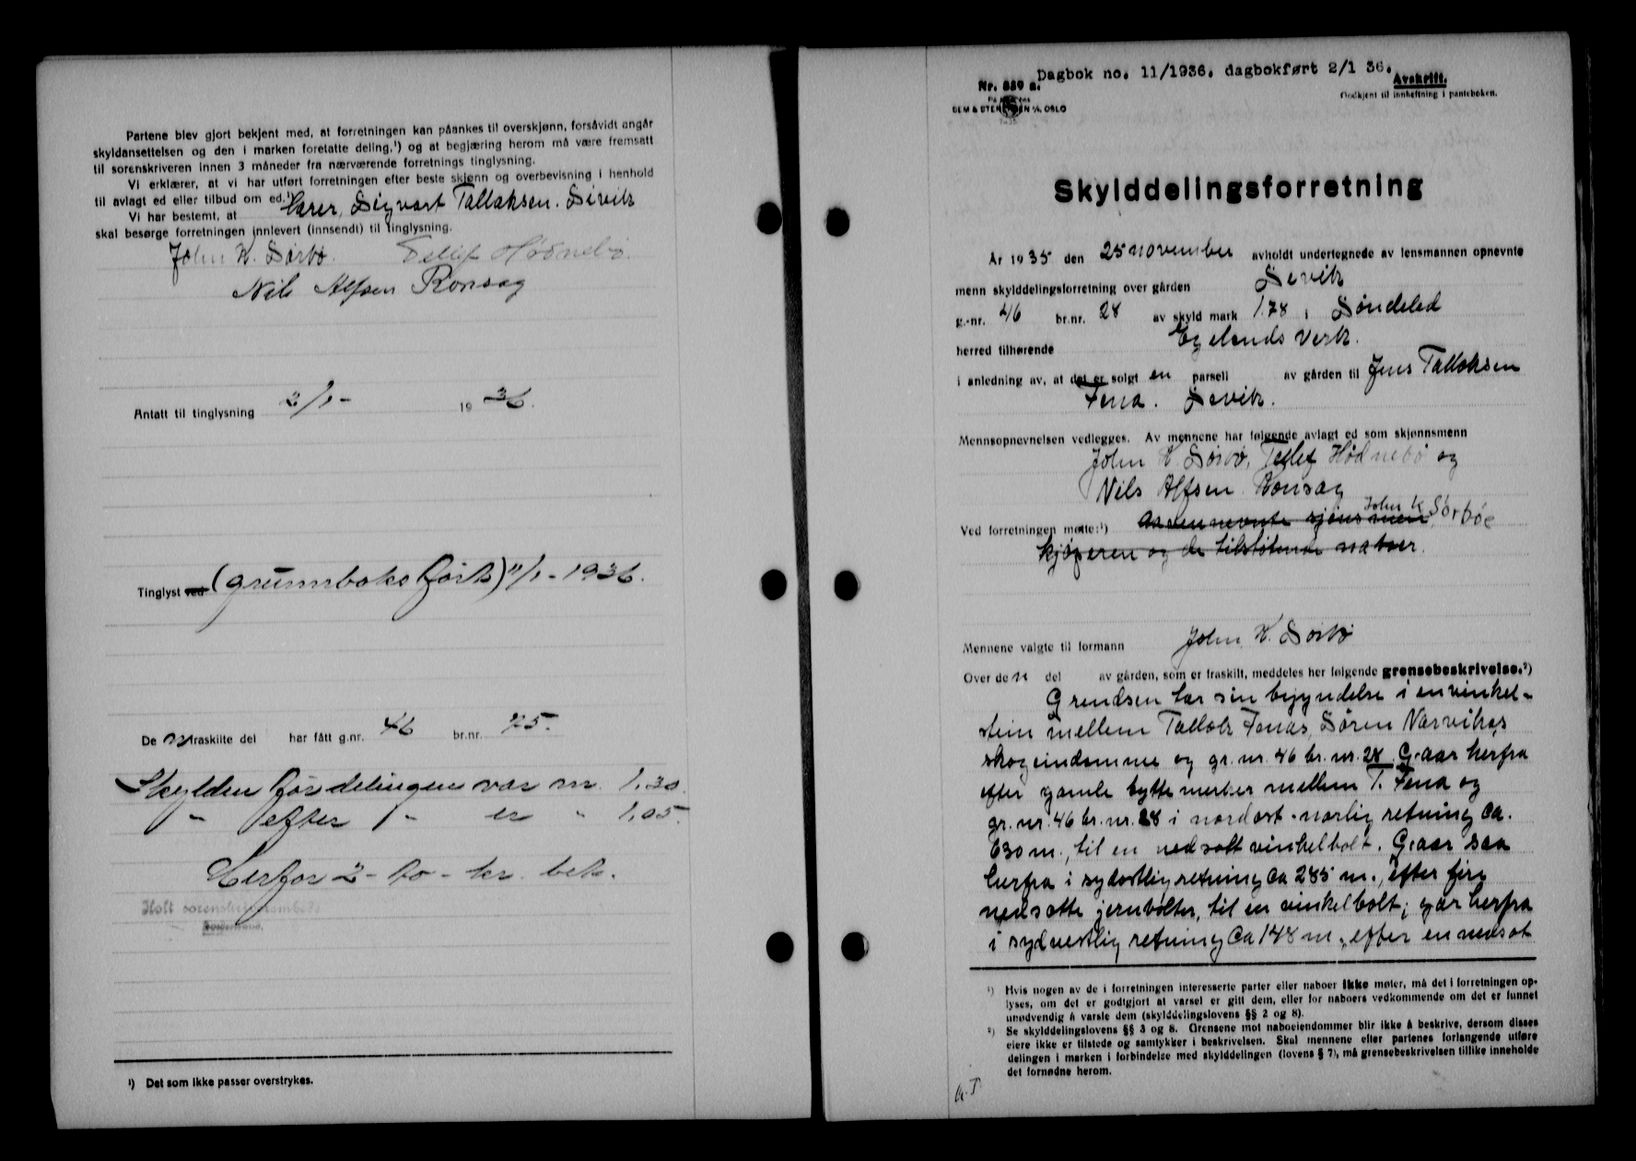 Partene blev gjort bekjent med, at forretningen kan påankes til overskjønn, forsåvidt angår
skyldansettelsen og den i marken foretatte deling,¹) og at begjæring herom må være fremsatt
til sorenskriveren innen 3 måneder fra nærværende forretnings tinglysning.
Vi erklærer, at vi har utført forretningen efter beste skjønn og overbevisning i henhold
til avlagt ed eller tilbud om ed.¹)
Vi har bestemt, at Lærer, Sigvart Tallaksen. Sivik
skal besørge forretningen innlevert (innsendt) til tinglysning.
John K. Sørbø. Tellef Hødnebø.
Nils Alfsen Ronsag
Antatt til tinglysning 2/1- 19 36.
Tinglyst ved (grunnboksført) 11/1-1936.
De n fraskilte del har fått g.nr. 46 br.nr. 75.
Skylden før delingen var m. 1,30
" efter " er " 1,05.
Herfor 2- to - kr. bet.
Holt sorenskriverembede
¹) Det som ikke passer overstrykes.
Dagbok no. 11/1936. dagbokført 2/1 36.
Nr. 539 a.
SEM & STENERSEN A/S, OSLO
Avskrift.
Godkjent til innheftning i panteboken.
Skylddelingsforretning
År 1935 den 25 november avholdt undertegnede av lensmannen opnevnte
menn skylddelingsforretning over gården Sevik
g.-nr. 46 br.nr. 28 av skyld mark 1.78 i Søndeled
herred tilhørende Egelands Verk.
i anledning av, at det er solgt en parsell av gården til Jens Tallaksen
Fena. Sevik.
Mennsopnevnelsen vedlegges. Av mennene har følgende avlagt ed som skjønnsmenn
John K. Sørbø, Tellef Hødnebø og
Nils Alfsen Ronsag
Ved forretningen møtte:¹) ovennevnte sjønsmen, John K Sørbøe
kjøperen og de tilstøtende naboer.
Mennene valgte til formann John K. Sørbø
Over de n del av gården, som er fraskilt, meddeles her følgende grensebeskrivelse.²)
Grendsen tar sin begyndelse i en vinkel-
stein mellem Tallak Fenas, Søren Narvikas
skogeindomme og gr. nr. 46 br. nr. 28. Gaar herfra
efter gamle byttemerker mellem T. Fena og
gr. nr. 46 br. nr. 28 i nordost-norlig retning ca.
630 m., til en nedsatt vinkelbolt. Gaar saa
herfra i sydostlig retning ca 285 m., efter fire
nedsatte jernbolter, til en vinkelbolt; gar herfra
i sydvestlig retning ca 148 m., efter en nedsat
¹) Hvis nogen av de i forretningen interesserte parter eller naboer ikke møter, må det i forretningen op-
lyses, om det er godtgjort at varsel er gitt dem, eller for naboers vedkommende om det er funnet
unødvendig å varsle dem (skylddelingslovens §§ 2 og 8).
²) Se skylddelingslovens §§ 3 og 8. Grensene mot naboeiendommer blir ikke å beskrive, dersom disses
eiere ikke er tilstede og samtykker i beskrivelsen. Skal mennene efter partenes forlangende utføre
delingen i marken i forbindelse med skylddelingen (lovens § 7), må grensebeskrivelsen tillike inneholde
det fornødne herom.